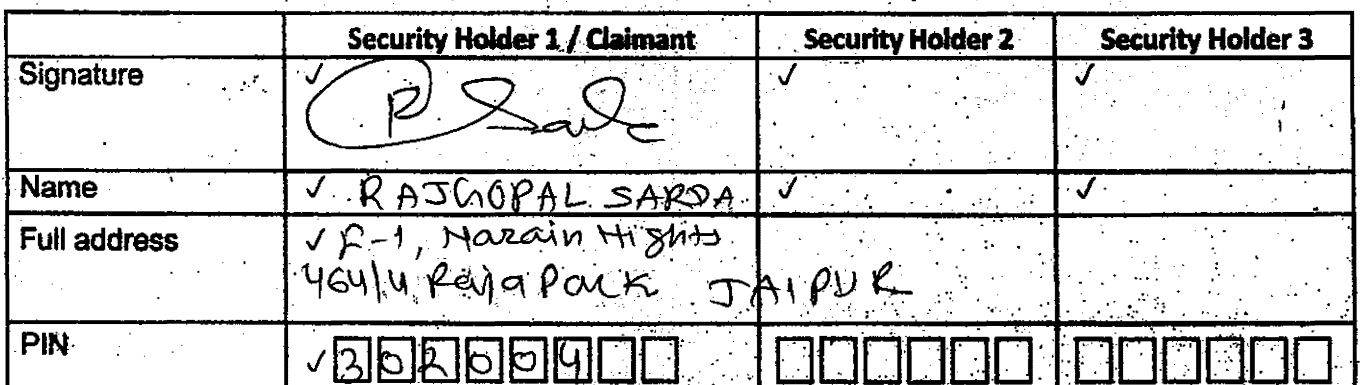 Security Holder 1 / Claimant Security Holder 2 Security Holder 3
Signature ✓ P Sarda ✓ ✓
Name ✓ RAJGOPAL SARDA ✓ ✓
Full address ✓ F-1, Narain Hights
464/4 Raja Park JAIPUR
PIN ✓ 302004